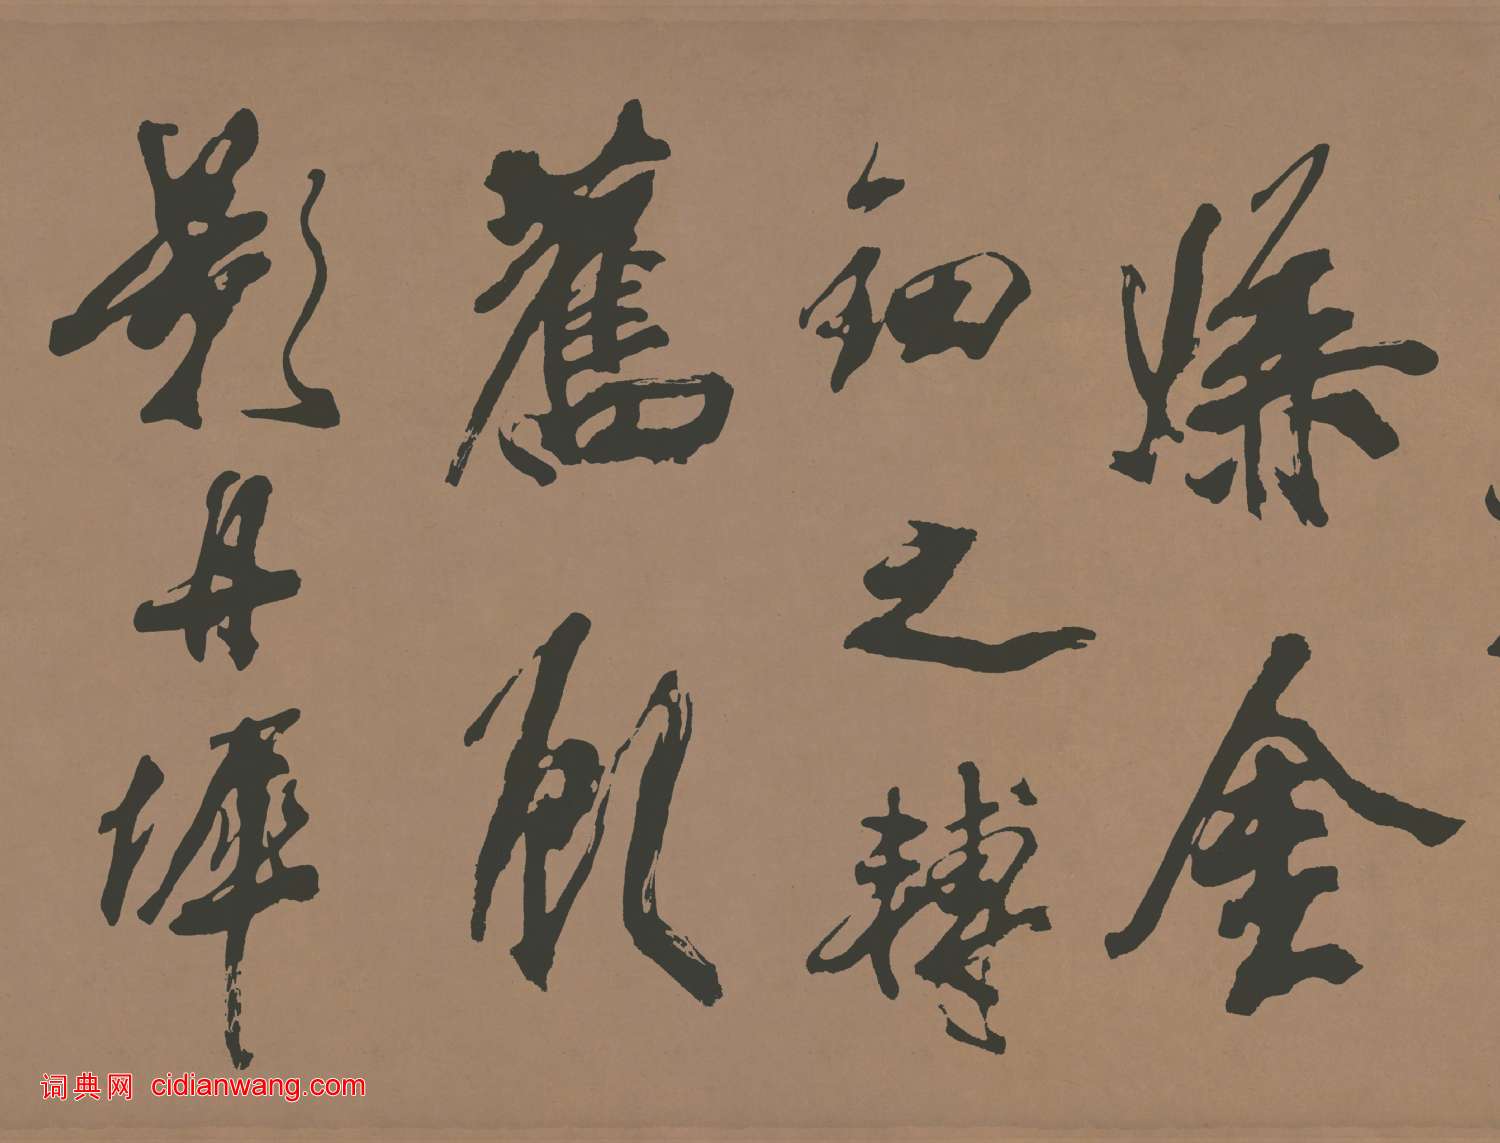 嫌金
鈿之轉
舊顧
影丹墀
词典网 cidianwang.com